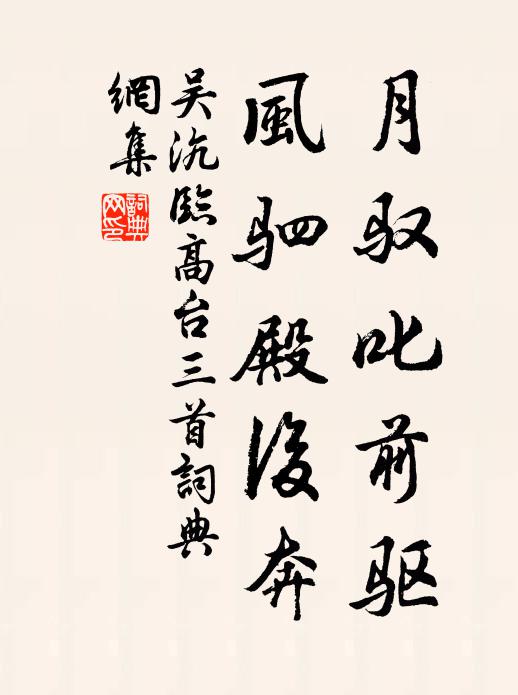 月驭叱前驱
風驷殿後奔
吴沆臨高台三首詞典
網集
詞典
网印